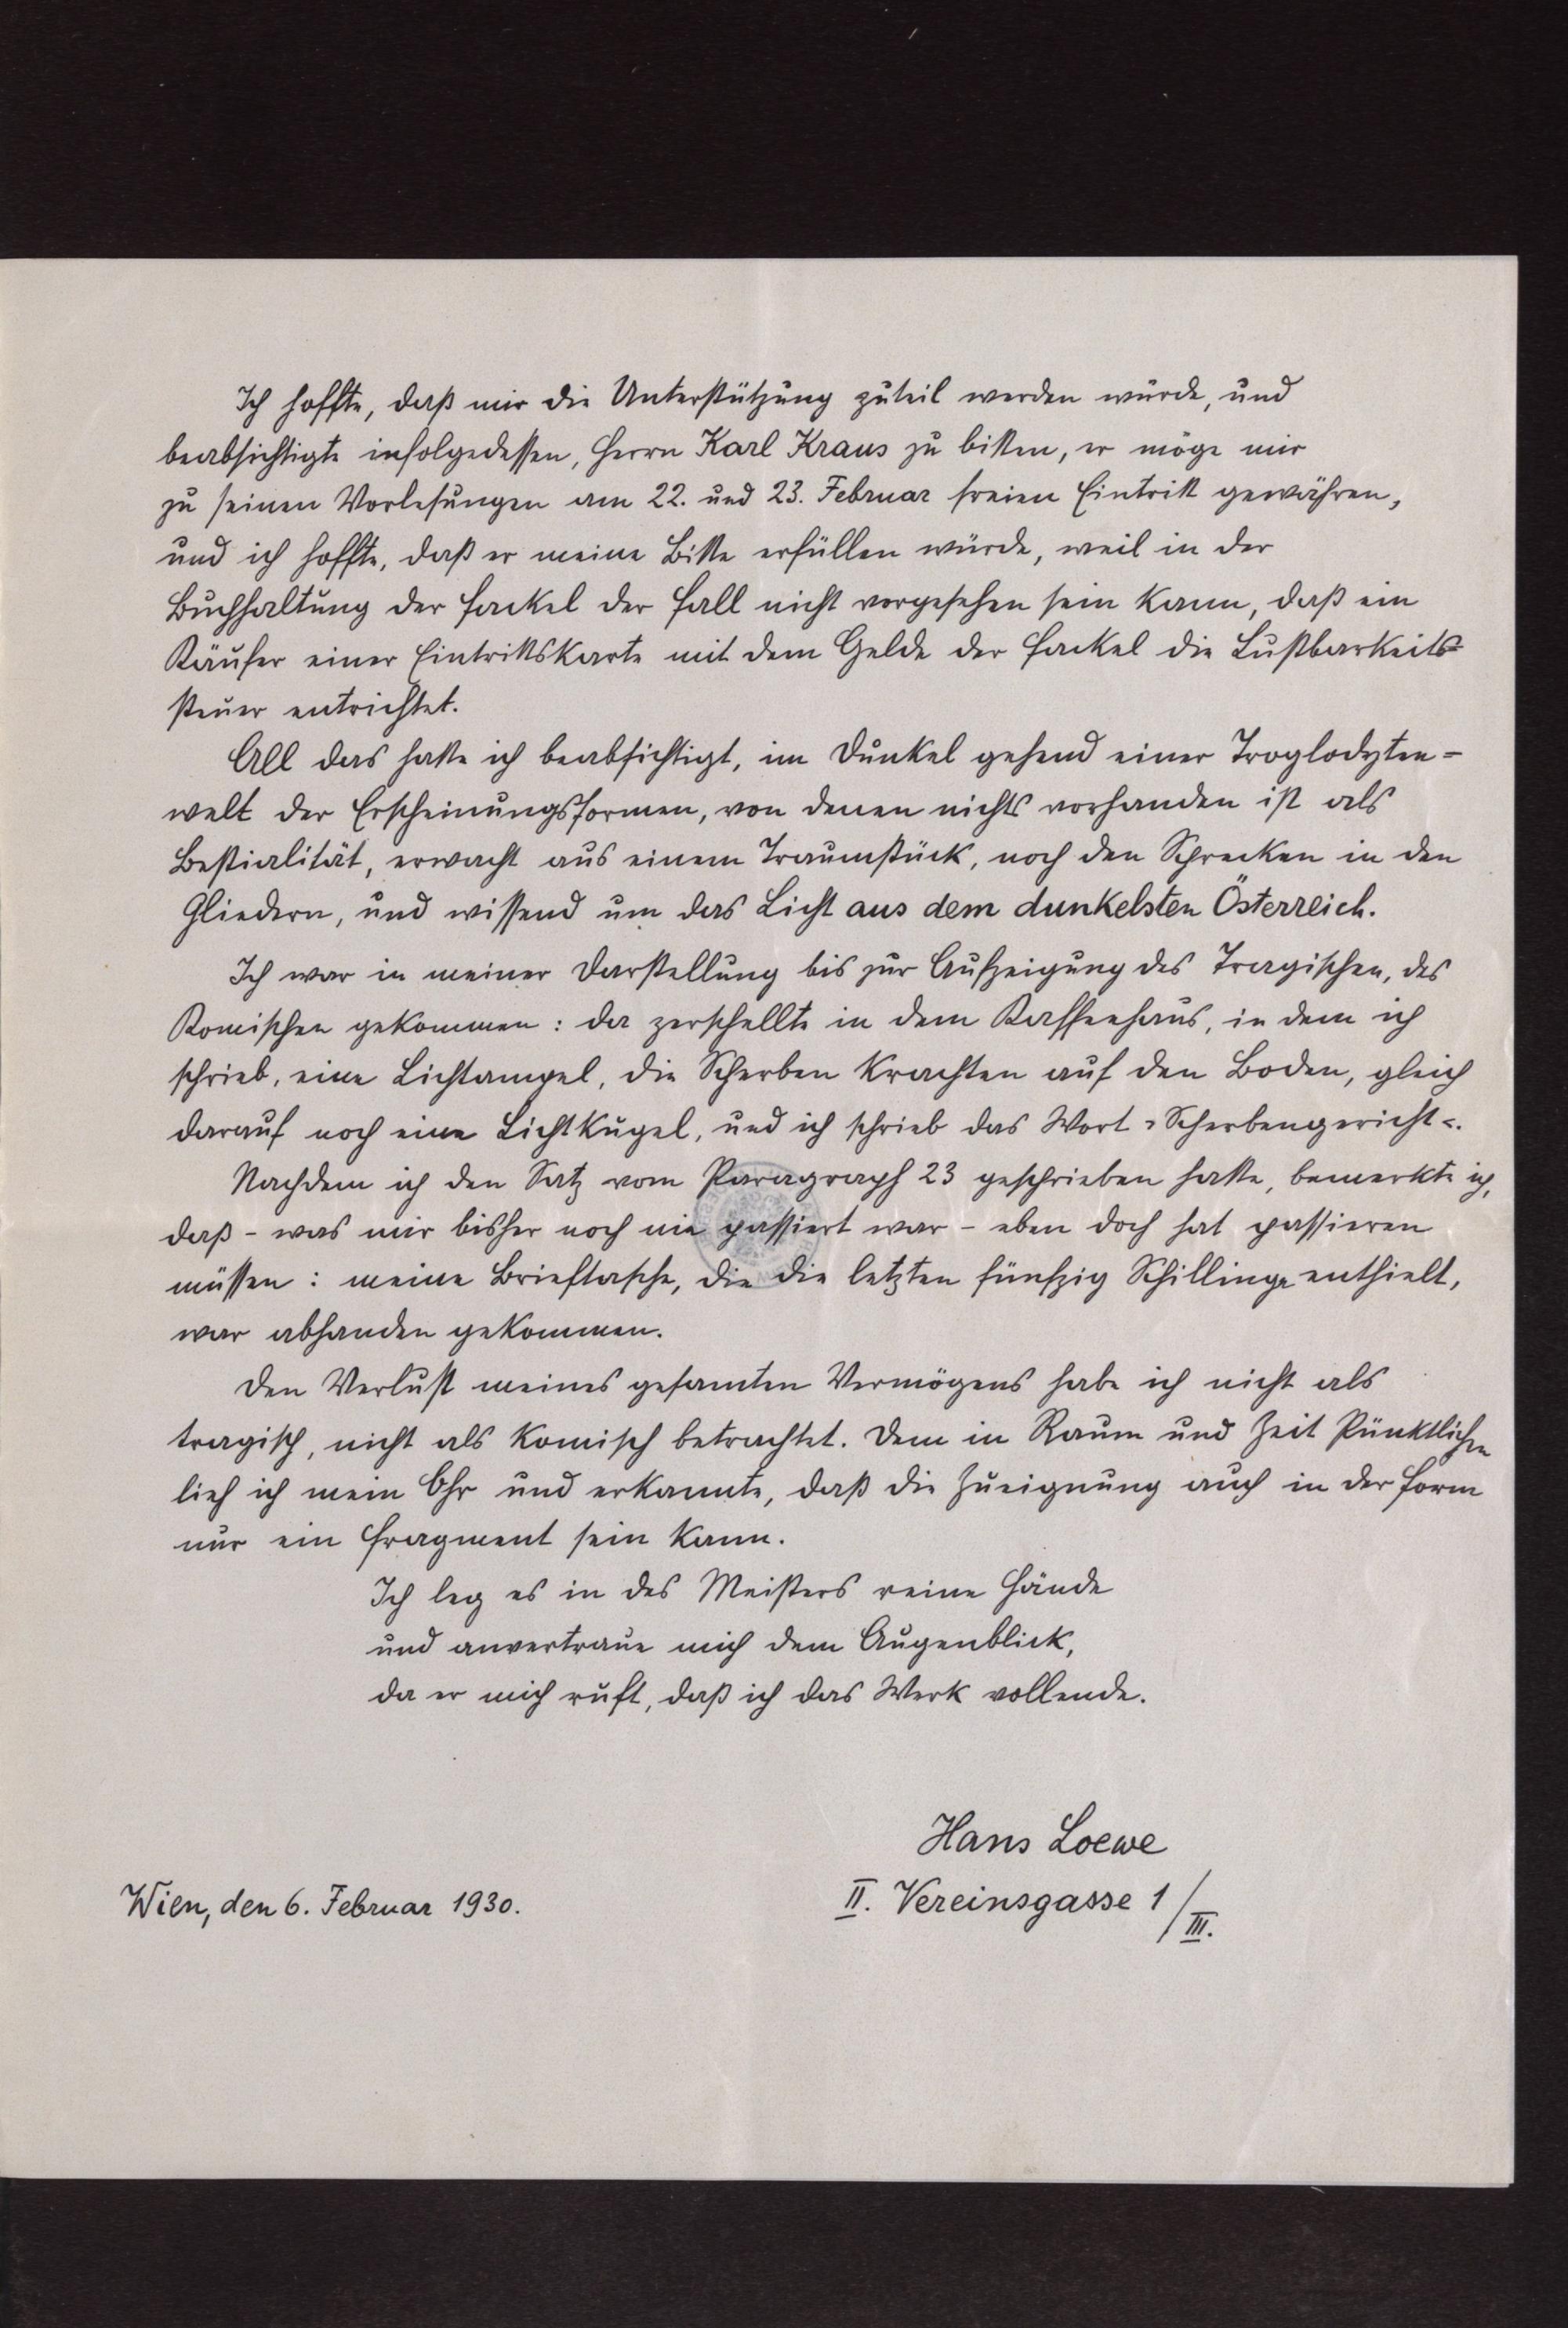 Ich hoffte, daß mir die Unterstützung zuteil werden würde, und
beabsichtigte infolgedessen, Herrn Karl Kraus zu bitten, er möge mir
zu seinen Vorlesungen am 22. und 23. Februar freien Eintritt gewähren,
und ich hoffte, daß er meine Bitte erfüllen würde, weil in der
Buchhaltung der Fackel der Fall nicht vorgesehen sein kann, daß ein
Käufer einer Eintrittskarte mit dem Gelde der Fackel die Lustbarkeits=
steuer entrichtet.
All das hatte ich beabsichtigt, im Dunkel gehend einer Troglodyten-
welt der Erscheinungsformen, von denen nichts vorhanden ist als
Bestialität, erwacht aus einem Traumstück, noch den Schrecken in den
Gliedern, und wissend um das Licht aus dem dunkelsten Österreich.
Ich war in meiner Darstellung bis zur Aufzeigung des Tragischen, des
Komischen gekommen: da zerschellte in dem Kaffeehaus, in dem ich
schrieb, eine Lichtampel, die Scherben krachten auf den Boden, gleich
darauf noch eine Lichtkugel, und ich schrieb das Wort »Scherbengericht«.
Nachdem ich den Satz vom Paragraph 23 geschrieben hatte, bemerkte ich,
daß - was mir bisher noch nie passiert war - eben doch hat passieren
müssen: meine Brieftasche, die die letzten fünfzig Schillinge enthielt,
war abhanden gekommen.
Den Verlust meines gesamten Vermögens habe ich nicht als
tragisch, nicht als komisch betrachtet. Dem in Raum und Zeit Pünktlichen
lieh ich mein Ohr und erkannte, daß die Zueignung auch in der Form
nur ein Fragment sein kann.
Ich leg es in des Meisters reine Hände
und anvertraue mich dem Augenblick,
da er mich ruft, daß ich das Werk vollende.
Hans Loewe
Wien, den 6. Februar 1930.
II. Vereinsgasse 1/III.